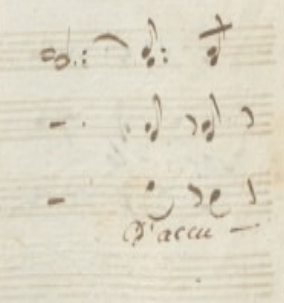 D'accu —